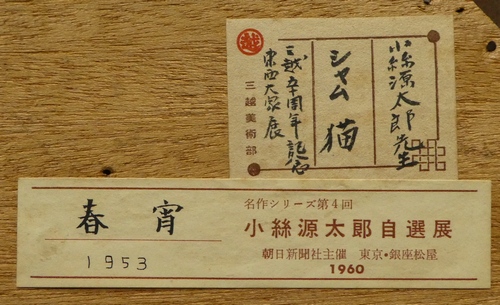 小絲源太郎先生
シャム猫
三越五十周年記念
東西大家展
三越美術部
春宵
1953
名作シリーズ第4回
小絲源太郎自選展
朝日新聞社主催 東京・銀座松屋
1960